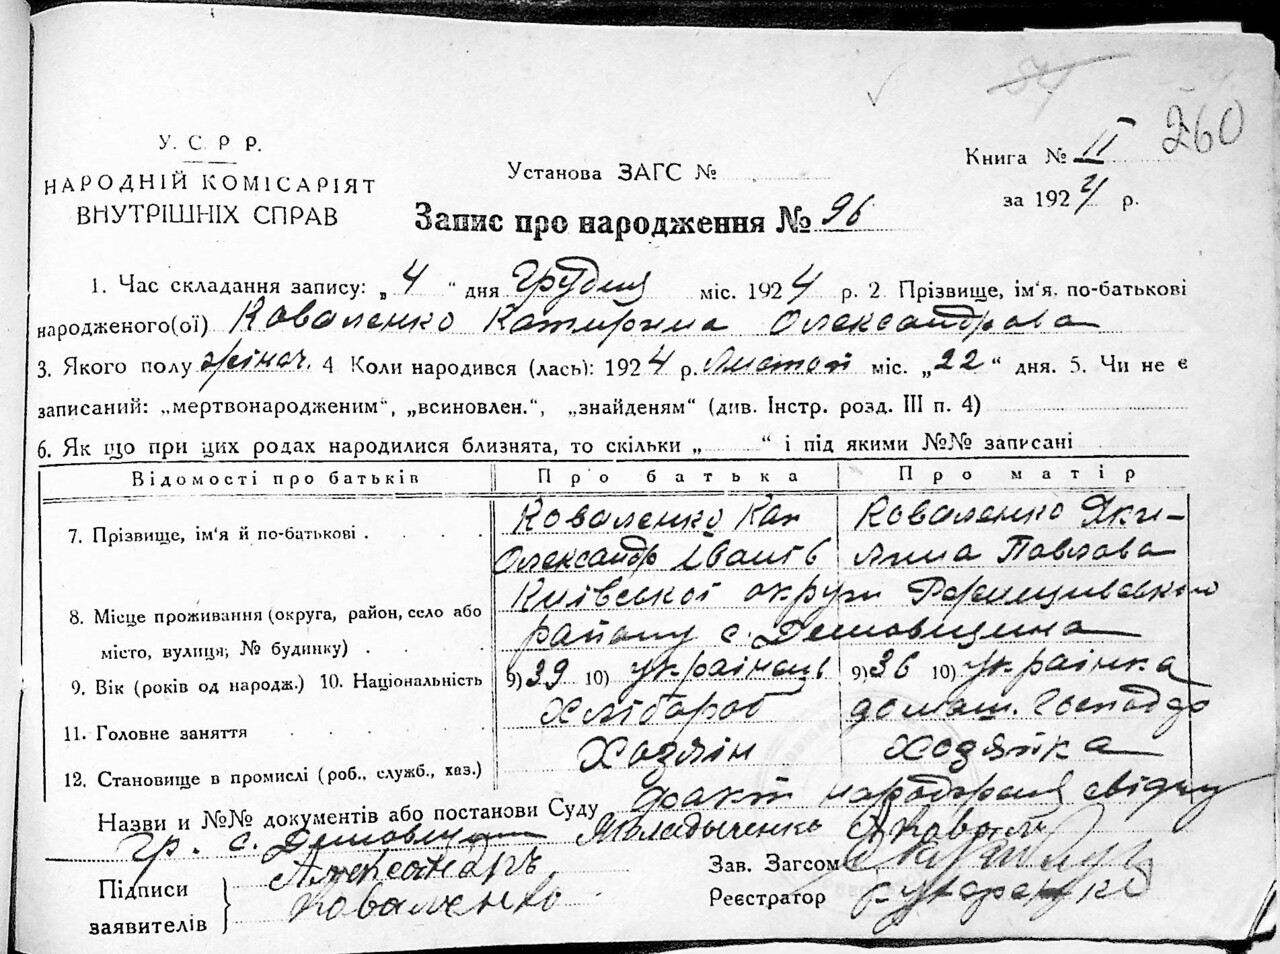 54
260
У. С. Р Р.
НАРОДНІЙ КОМІСАРІЯТ
ВНУТРІШНІХ СПРАВ
Установа ЗАГС №
Книга № II
за 1924 р.
Запис про народження № 96
1. Час складання запису: „4“ дня Грудня міс. 1924 р. 2 Прізвище, ім'я, по-батькові
народженого(ої) Коваленко Катирина Олександрова
3. Якого полу жіноч. 4 Коли народився (лась): 1924 р. Листоп міс. „22“ дня. 5. Чи не є
записаний: „мертвонародженим“, „всиновлен.“, „знайденям“ (див. Інстр. розд. III п. 4)
6. Як що при цих родах народилися близнята, то скільки „ “ і під якими №№ записані
Відомості про батьків Про батька Про матір
7. Прізвище, ім'я й по-батькові . Коваленко Олександр Іванів Коваленко Яки-
лина Павлова
8. Місце проживання (округа, район, село або Київської округи
місто, вулиця, № будинку) . району с. Демовщина
9. Вік (років од народж.) 10. Національність 9) 39 10) українець 9) 36 10) українка
11. Головне заняття Хлібороб домаш. господар
12. Становище в промислі (роб., служб., хаз.) Хозяін Хозяйка
Назви и №№ документів або постанови Суду факт народження свідчу
гр. с. Демовщин
Підписи
заявителів
Александръ
Коваленко
Зав. Загсом
Реєстратор